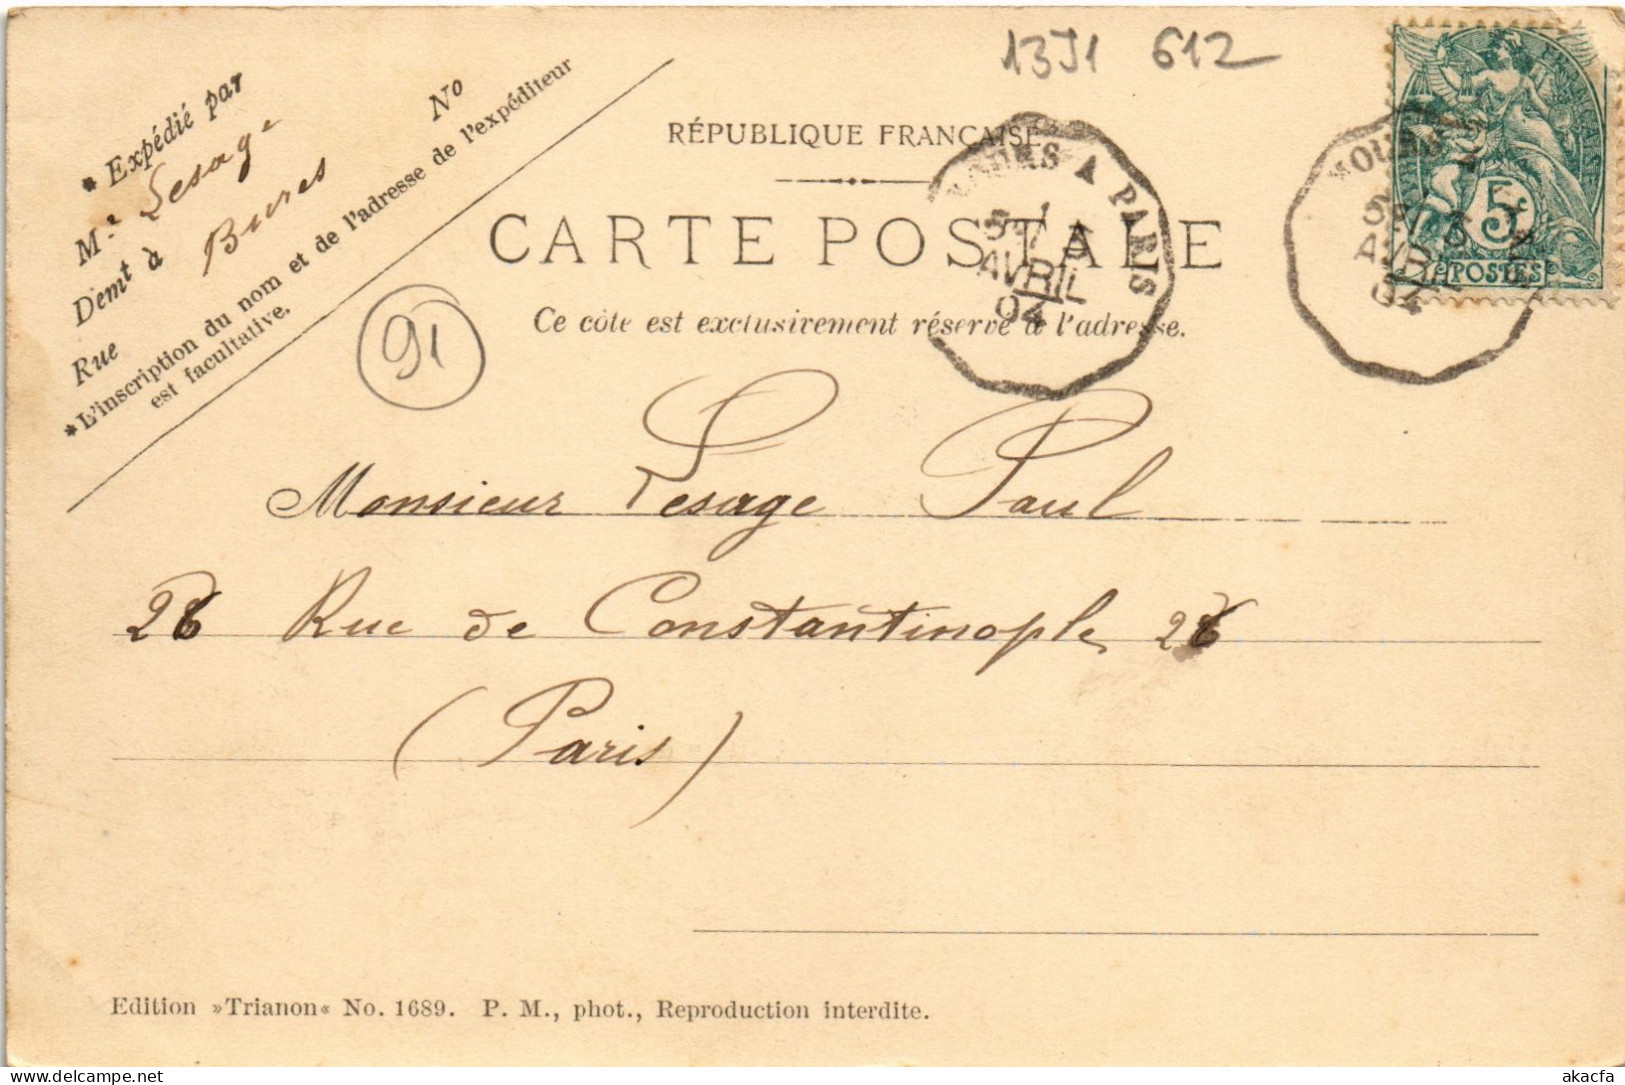 13J1 612
* Expédié par
Mr Lesage
Demt à Bures
Rue No
* L'inscription du nom et de l'adresse de l'expéditeur
est facultative.
RÉPUBLIQUE FRANÇAISE
CARTE POSTALE
Ce côté est exclusivement réservé à l'adresse.
A PARIS
AVRIL
04
AVRIL
04
5c
POSTES
91
Monsieur Lesage Paul
26 Rue de Constantinople 26
(Paris)
Edition »Trianon« No. 1689. P. M., phot., Reproduction interdite.
akacfa